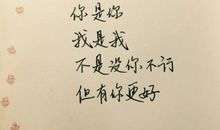 你是你
我是我
不是没你不行
但有你更好